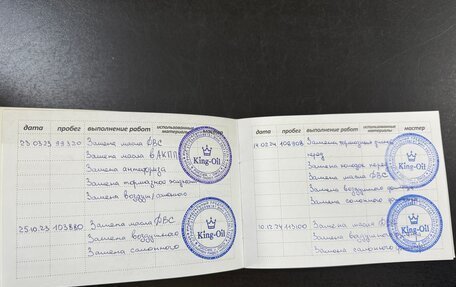 дата пробег выполнение работ использованные материалы мастер
23.03.23 99320 Замена масла ДВС
Замена масла в АКПП
Замена антифриза
Замена тормозной жидкости
Замена воздуш/салонн
King-Oil
25.10.23 103880 Замена масла ДВС
Замена воздушного
Замена салонного
King-Oil
дата пробег выполнение работ использованные материалы мастер
14.02.24 108808 Замена тормозных
перед
Замена колодок
Замена масла ДВС
Замена воздушного
Замена салонного
King-Oil
10.12.24 113100 Замена масла
Замена воздушного
Замена салонного
King-Oil